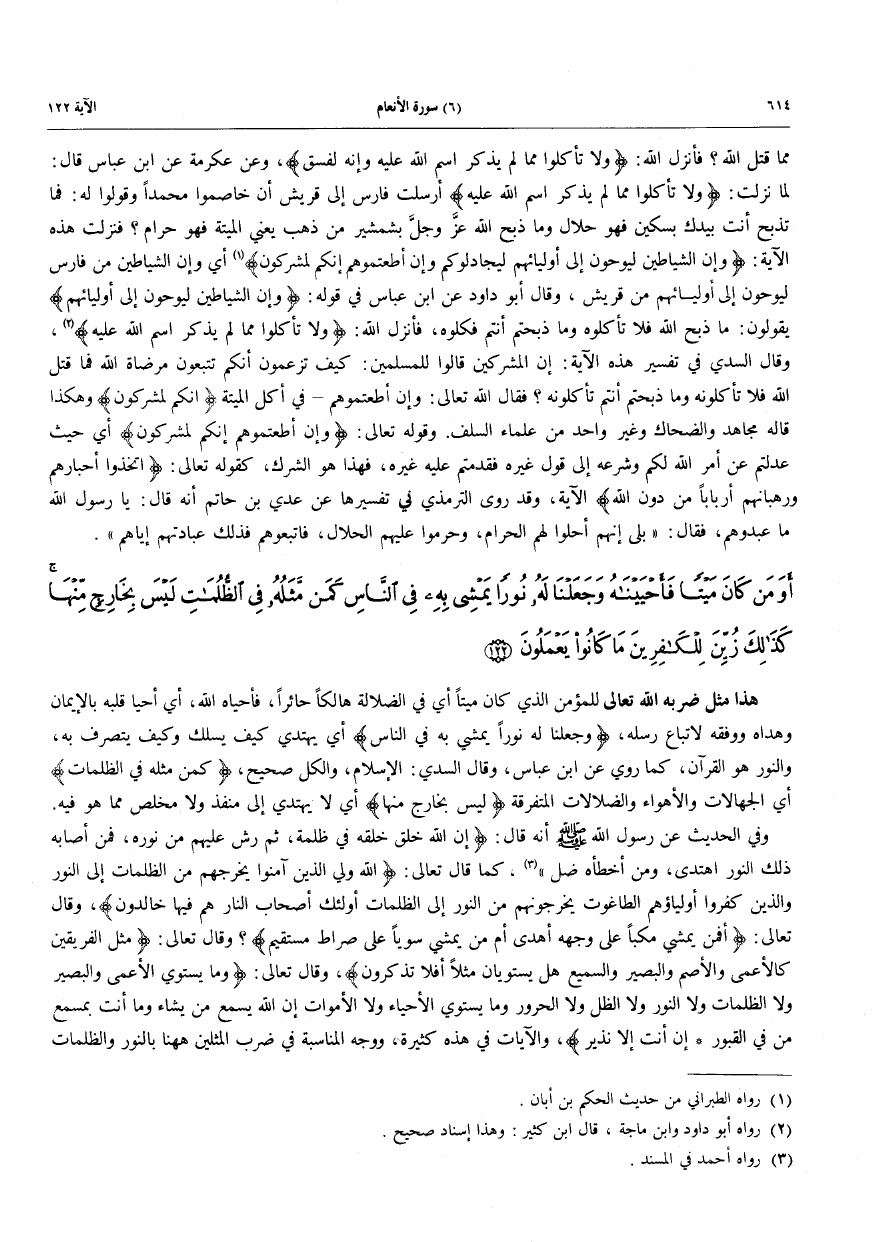 ٦١٤ (٦) سورة الأنعام الآية ١٢٢
مما قتل الله ؟ فأنزل الله : ﴿ ولا تأكلوا مما لم يذكر اسم الله عليه وإنه لفسق ﴾ ، وعن عكرمة عن ابن عباس قال :
لما نزلت : ﴿ ولا تأكلوا مما لم يذكر اسم الله عليه ﴾ أرسلت فارس إلى قريش أن خاصموا محمداً وقولوا له : فما
تذبح أنت بيدك بسكين فهو حلال وما ذبح الله عزَّ وجلَّ بشمشير من ذهب يعني الميتة فهو حرام ؟ فنزلت هذه
الآية : ﴿ وإن الشياطين ليوحون إلى أوليائهم ليجادلوكم وإن أطعتموهم إنكم لمشركون ﴾(١) أي وإن الشياطين من فارس
ليوحون إلى أوليـائهم من قريش ، وقال أبو داود عن ابن عباس في قوله : ﴿ وإن الشياطين ليوحون إلى أوليائهم ﴾
يقولون : ما ذبح الله فلا تأكلوه وما ذبحتم أنتم فكلوه ، فأنزل الله : ﴿ ولا تأكلوا مما لم يذكر اسم الله عليه ﴾(٢) ،
وقال السدي في تفسير هذه الآية : إن المشركين قالوا للمسلمين : كيف تزعمون أنكم تتبعون مرضاة الله فما قتل
الله فلا تأكلونه وما ذبحتم أنتم تأكلونه ؟ فقال الله تعالى : وإن أطعتموهم – في أكل الميتة ﴿ انكم لمشركون ﴾ وهكذا
قاله مجاهد والضحاك وغير واحد من علماء السلف. وقوله تعالى : ﴿ وإن أطعتموهم إنكم لمشركون ﴾ أي حيث
عدلتم عن أمر الله لكم وشرعه إلى قول غيره فقدمتم عليه غيره ، فهذا هو الشرك ، كقوله تعالى : ﴿ اتخذوا أحبارهم
ورهبانهم أرباباً من دون الله ﴾ الآية ، وقد روى الترمذي في تفسيرها عن عدي بن حاتم أنه قال : يا رسول الله
ما عبدوهم ، فقال : « بلى إنهم أحلوا لهم الحرام ، وحرموا عليهم الحلال ، فاتبعوهم فذلك عبادتهم إياهم » .
أَوَمَن كَانَ مَيْتًا فَأَحْيَيْنَٰهُ وَجَعَلْنَا لَهُۥ نُورًا يَمْشِى بِهِۦ فِى ٱلنَّاسِ كَمَن مَّثَلُهُۥ فِى ٱلظُّلُمَٰتِ لَيْسَ بِخَارِجٍ مِّنْهَا ۚ
كَذَٰلِكَ زُيِّنَ لِلْكَٰفِرِينَ مَا كَانُوا۟ يَعْمَلُونَ ﴿١٢٢﴾
هذا مثل ضربه الله تعالى للمؤمن الذي كان ميتاً أي في الضلالة هالكاً حائراً ، فأحياه الله ، أي أحيا قلبه بالإيمان
وهداه ووفقه لاتباع رسله ، ﴿ وجعلنا له نوراً يمشي به في الناس ﴾ أي يهتدي كيف يسلك وكيف يتصرف به ،
والنور هو القرآن ، كما روي عن ابن عباس ، وقال السدي : الإسلام ، والكل صحيح ، ﴿ كمن مثله في الظلمات ﴾
أي الجهالات والأهواء والضلالات المتفرقة ﴿ ليس بخارج منها ﴾ أي لا يهتدي إلى منفذ ولا مخلص مما هو فيه.
وفي الحديث عن رسول الله ﷺ أنه قال : ﴿ إن الله خلق خلقه في ظلمة ، ثم رش عليهم من نوره ، فمن أصابه
ذلك النور اهتدى ، ومن أخطأه ضل »(٣) . كما قال تعالى : ﴿ الله ولي الذين آمنوا يخرجهم من الظلمات إلى النور
والذين كفروا أولياؤهم الطاغوت يخرجونهم من النور إلى الظلمات أولئك أصحاب النار هم فيها خالدون ﴾ ، وقال
تعالى : ﴿ أفمن يمشي مكباً على وجهه أهدى أم من يمشي سوياً على صراط مستقيم ﴾ ؟ وقال تعالى : ﴿ مثل الفريقين
كالأعمى والأصم والبصير والسميع هل يستويان مثلاً أفلا تذكرون ﴾ ، وقال تعالى : ﴿ وما يستوي الأعمى والبصير
ولا الظلمات ولا النور ولا الظل ولا الحرور وما يستوي الأحياء ولا الأموات إن الله يسمع من يشاء وما أنت بمسمع
من في القبور * إن أنت إلا نذير ﴾ ، والآيات في هذه كثيرة ، ووجه المناسبة في ضرب المثلين ههنا بالنور والظلمات
(١) رواه الطبراني من حديث الحكم بن أبان .
(٢) رواه أبو داود وابن ماجة ، قال ابن كثير : وهذا إسناد صحيح .
(٣) رواه أحمد في المسند .